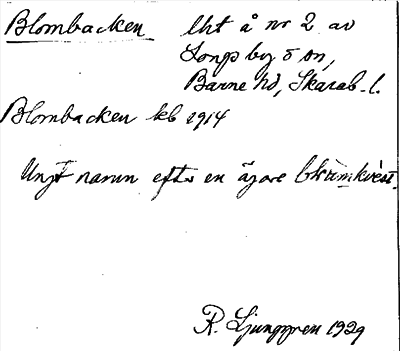 Blombacken lht å nr 2 av
Longs by ö on,
Barne hd, Skarab. l.
Blombacken kb 1914
Ungt namn efter en ägare
R. Ljunggren 1929